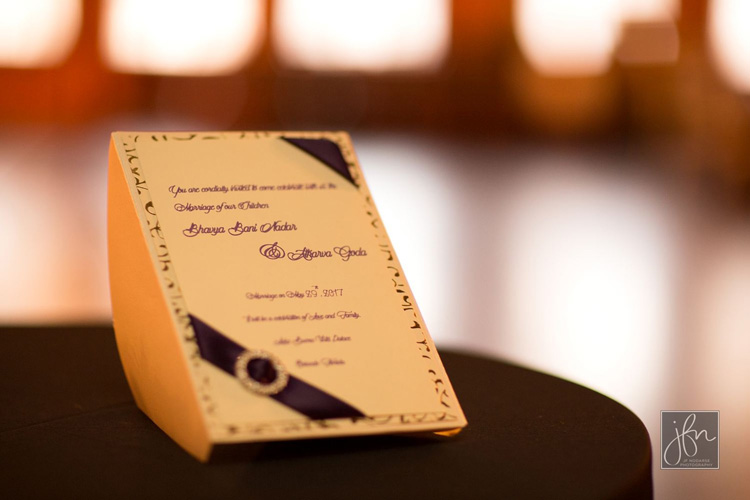 You are cordially invited to come celebrate with us the
Marriage of our Children
Bhavya Bani Nadar
& Atharva Goda
Marriage on May 29th, 2017
in a celebration of and Family.
jfn
PHOTOGRAPHY